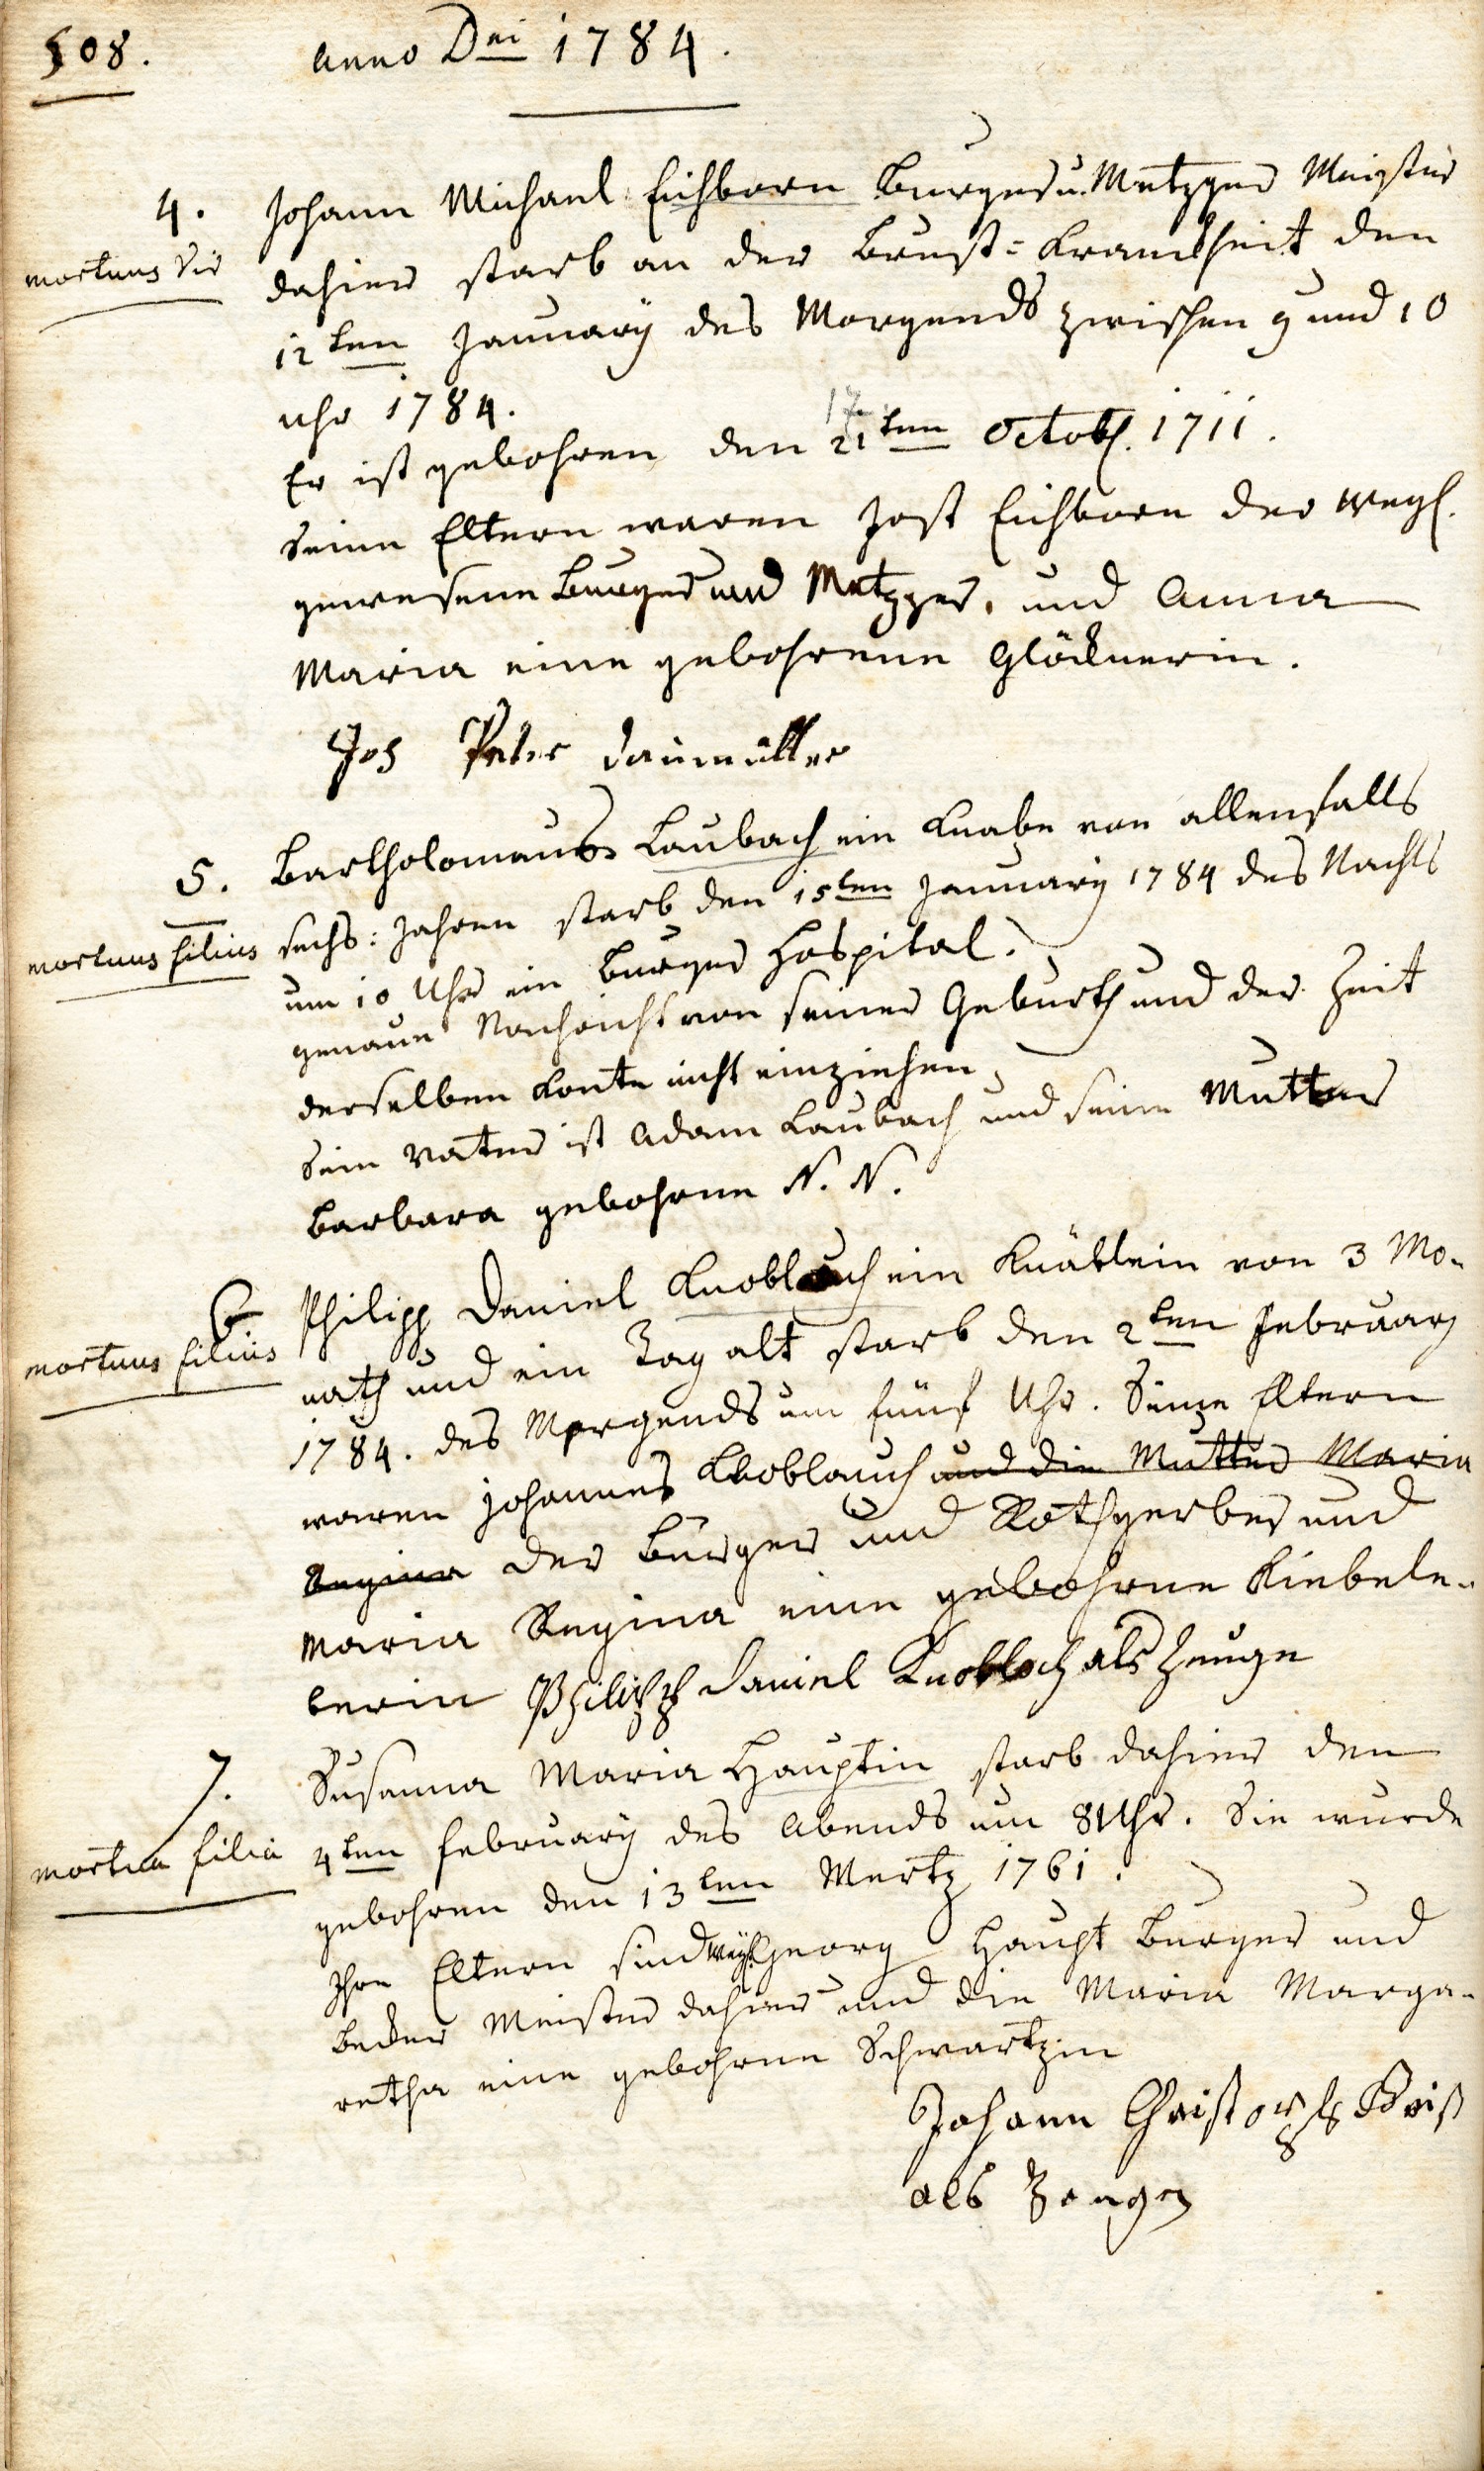 508. anno Dni 1784.
4. Johann Michael Eichborn Burger u. Metzger Meister
mortuus Vir dahier starb an der Brust=Kranckheit den
12ten January des Morgends zwischen 9 und 10
uhr 1784.
17
Er ist gebohren den 21ten Octobr. 1711.
Seine Eltern waren Jost Eichborn der weyl.
gewesene Burger und Metzger, und Anna
Maria eine gebohrene Glöcknerin.
Joh Peter Daumüller
5. Bartholomaus Laubach ein Knabe von allenfalls
mortuus filius sechs: Jahren starb den 15ten January 1784 des Nachts
um 10 Uhr ein Burger Hospital.
genaue Nachricht von seiner Geburth und der Zeit
derselben konte nicht einziehen,
Sein Vater ist Adam Laubach und seine Mutter
Barbara gebohrne N. N.
6 Philipp Daniel Knoblauch ein Knäblein von 3 Mo-
mortuus filius nath und ein Tag alt starb den 2ten February
1784. des Morgends um fünf Uhr. Seine Eltern
waren Johannes Knoblauch und die Mutter Maria
Regina der Burger und Rothgerber und
Maria Regina eine gebohrne Kiebele-
lerin Philipp Daniel Knobloch als Zeuge
7. Susanna Maria Hauptin starb dahier den
mortua filia 4ten February des Abends um 8 Uhr. Sie wurde
gebohren den 13ten Mertz 1761.
Ihre Eltern sind weyl. Georg Haupt Burger und
Becker Meister dahier und die Maria Marga-
retha eine gebohrne Schwartzin
Johann Christoph Kriß
als Zeuge